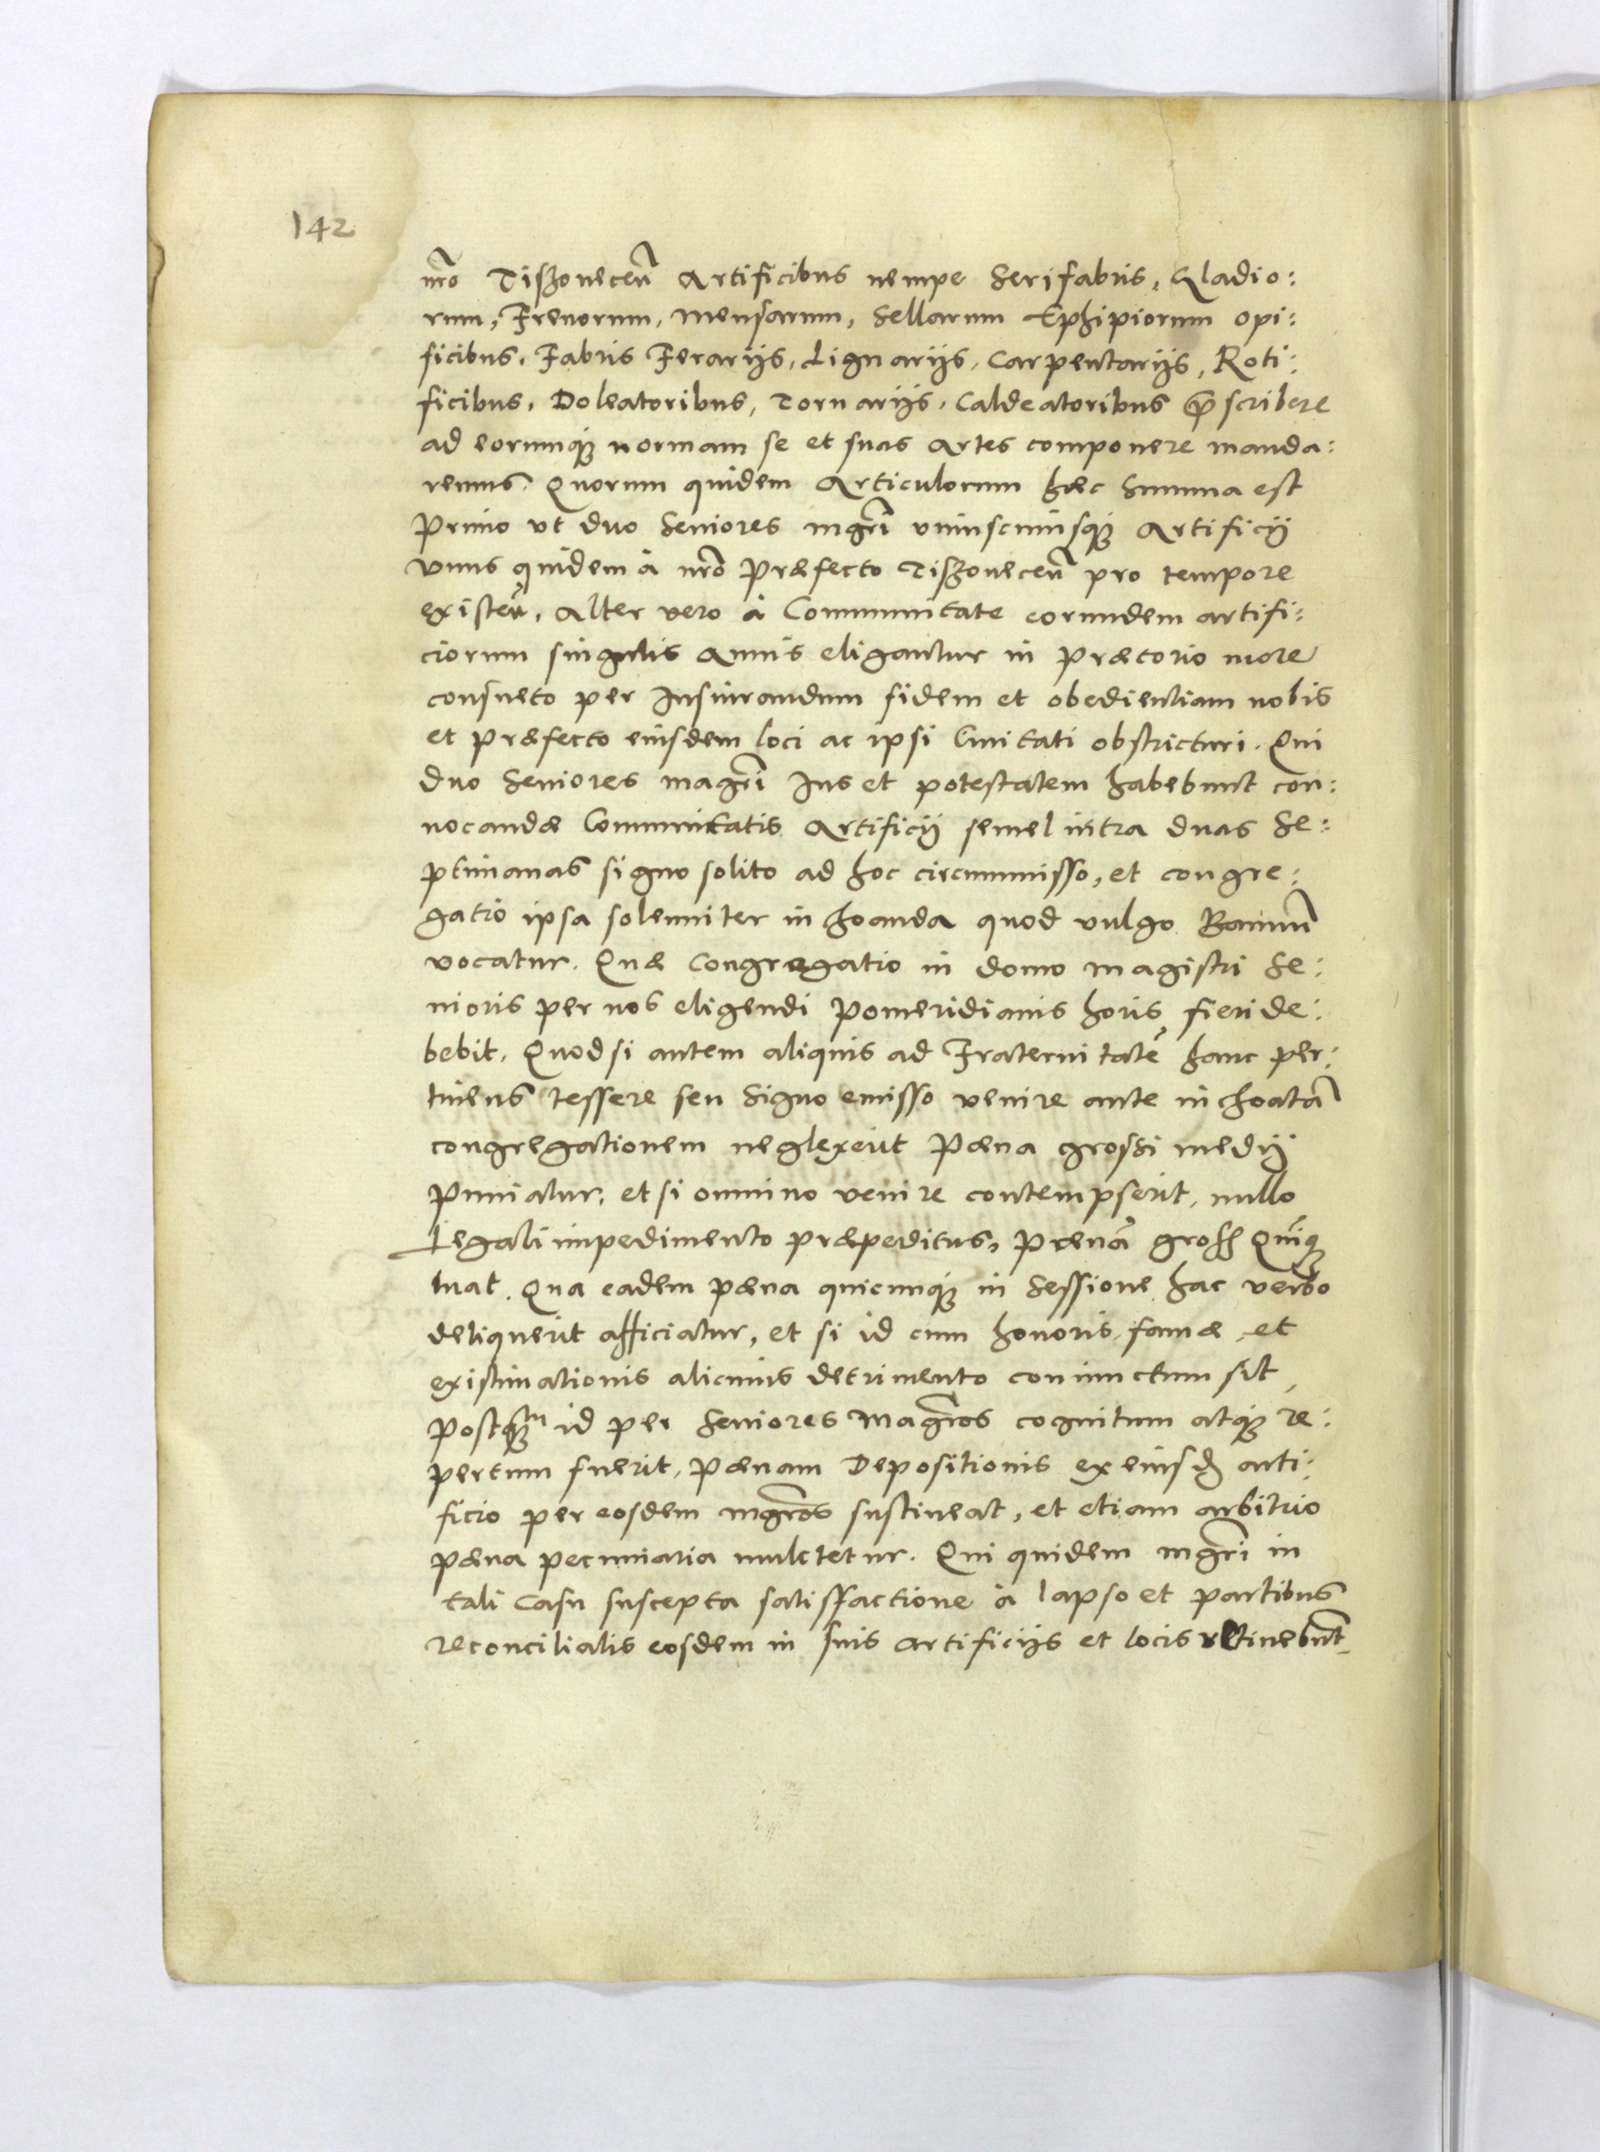 142
nr̃o Tiszovecen̄ Artificibus nempe Serifabris, Gladio:
rum, Frenorum, Mensarum, Sellarum Ephipiorum opi:
ficibus, Fabris Ferarijs, Lignarijs, Carpentarijs, Roti:
ficibus, Doleatoribus, Tornarijs, Caldeatoribus p̄scribere
ad eorumq́ normam se et suas Artes componere manda:
remus. Quorum quidem Articulorum hæc Summa est
Primo vt duo Seniores mgr̃i vniuscuiusq́ Artificij
vnus quidem à nr̃o Præfecto Tiszovecen̄ pro tempore
existen̄, Alter vero à Communitate eorundem artifi:
ciorum singulis Annis eligantur in Prætorio more
consueto per Iusiurandum fidem et obedientiam nobis
et Præfecto eiusdem loci ac ipsi Ciuitati obstricturi. Qui
duo Seniores magr̃i Ius et potestatem habebunt con:
uocandæ Communitatis Artificij semel intra duas Se:
ptimanas signo solito ad hoc circummisso, et congre:
gatio ipsa solenniter inchoanda quod vulgo Bannũ
vocatur. Quæ Congregatio in domo magistri Se:
nioris per nos eligendi Pomeridianis horis fieri de:
bebit. Quod si autem aliquis ad Fraternitatẽ hanc per:
tinens tessere seu Signo emisso venire ante inchoatã
congregationem neglexerit Pæna grossi medij
Puniatur, et si omnino venire contempserit, nullo
Legali impedimento præpeditus, Pænã gross Quinq́
luat. Qua eadem pæna quicunq́ in Sessione hac verbo
deliquerit afficiatur, et si id cum honoris famæ et
existimationis alicuius detrimento coniunctum sit,
Postq́m id per Seniores Magr̃os cognitum atq́ re:
pertum fuerit, Pænam Depositionis ex eiusd̃ arti:
ficio per eosdem mgr̃os sustineat, et etiam arbitrio
pæna pecuniaria mulctetur. Qui quidem mgr̃i in
tali Casu suscepta satisfactione à lapso et partibus
reconciliatis eosdem in suis artificijs et locis retinebũt